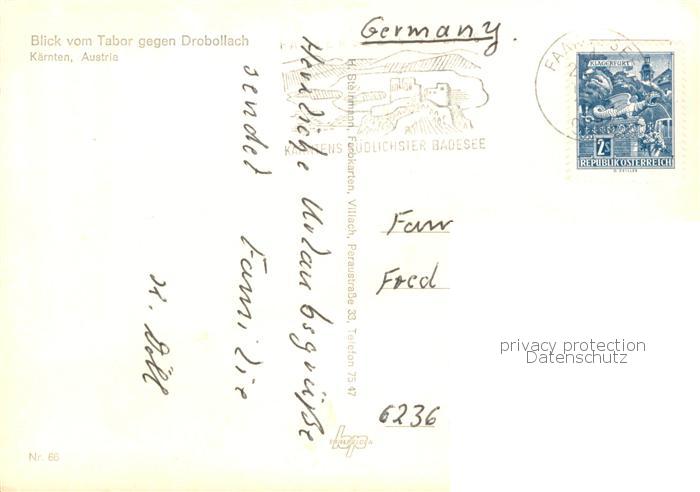 Blick vom Tabor gegen Drobollach
Kärnten, Austria
Germany.
KLAGENFURT
2S
REPUBLIK ÖSTERREICH
KÄRNTENS SÜDLICHSTER BADESEE
H. Steinmann, Farbkarten, Villach, Peraustraße 33, Telefon 75 47
Herzliche Urlaubsgrüße
sendet Familie
Döll
Fam
Fred
6236
privacy protection
Datenschutz
Nr. 66